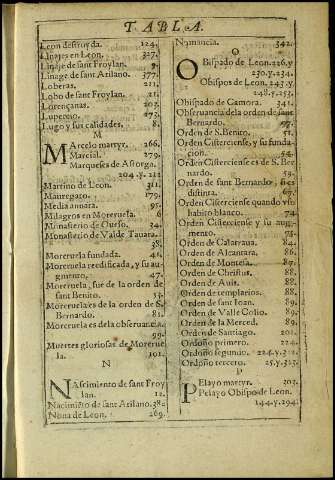 TABLA.
Leon destroyda. 124.
Linajes en Leon. 327.
Linaje de sant Froylan. 9.
Linage de sant Atilano. 377.
Loberas. 211.
Lobo de sant Froylan. 21.
Lorençanas. 203.
Lupercio. 273.
Lugo y sus calidades. 8.
M
MArcelo martyr. 266.
Marcial. 279.
Marqueses de Astorga.
204.y 212
Martino de Leon. 311.
Mauregato. 179.
Media annata. 95.
Milagros en Moreruela. 6
Monasterio de Curso. 34.
Monasterio de Valde Tauara.
38.
Moreruela fundada. 42.
Moreruela reedificada, y su au-
gmento. 47.
Moreruela, fue de la orden de
sant Benito. 53.
Moreruela es de la orden de S.
Bernardo. 81.
Moreruela es de la obseruancia.
99.
Muertes gloriosas de Moreruela.
101.
N
NAscimiento de sant Froy
lan. 12.
Nacimiento de sant Atilano. 38.
Nona de Leon. 269.
Numancia. 342.
O
OBispado de Leon. 226.y
230.y.234.
Obispos de Leon. 243.y
248.y.253.
Obispado de Çamora. 341.
Obseruancia dela orden de sant
Bernardo. 97.
Orden de S. Benito. 51.
Orden Cisterciense, y su funda-
cion. 54.
Orden Cisterciense es de S. Ber
nardo. 59.
Orden de sant Bernardo es
distinta. 67.
Orden Cisterciense quando vso
habito blanco. 74.
Orden Cisterciense y su aug-
mento. 75.
Orden de Calatraua. 84.
Orden de Alcantara. 86.
Orden de Montesa. 87.
Orden de Christus. 88.
Orden de Auis. 88.
Orden de templarios. 88.
Orden de sant Ioan. 89.
Orden de Valle Colio. 89.
Orden de la Merced. 89.
Orden de Santiago. 201.
Ordoño primero. 224.
Ordoño segundo. 224.y.312.
Ordoño tercero. 25.y.313.
P
PElayo martyr. 303.
Pelayo Obispo de Leon.
144.y.294.